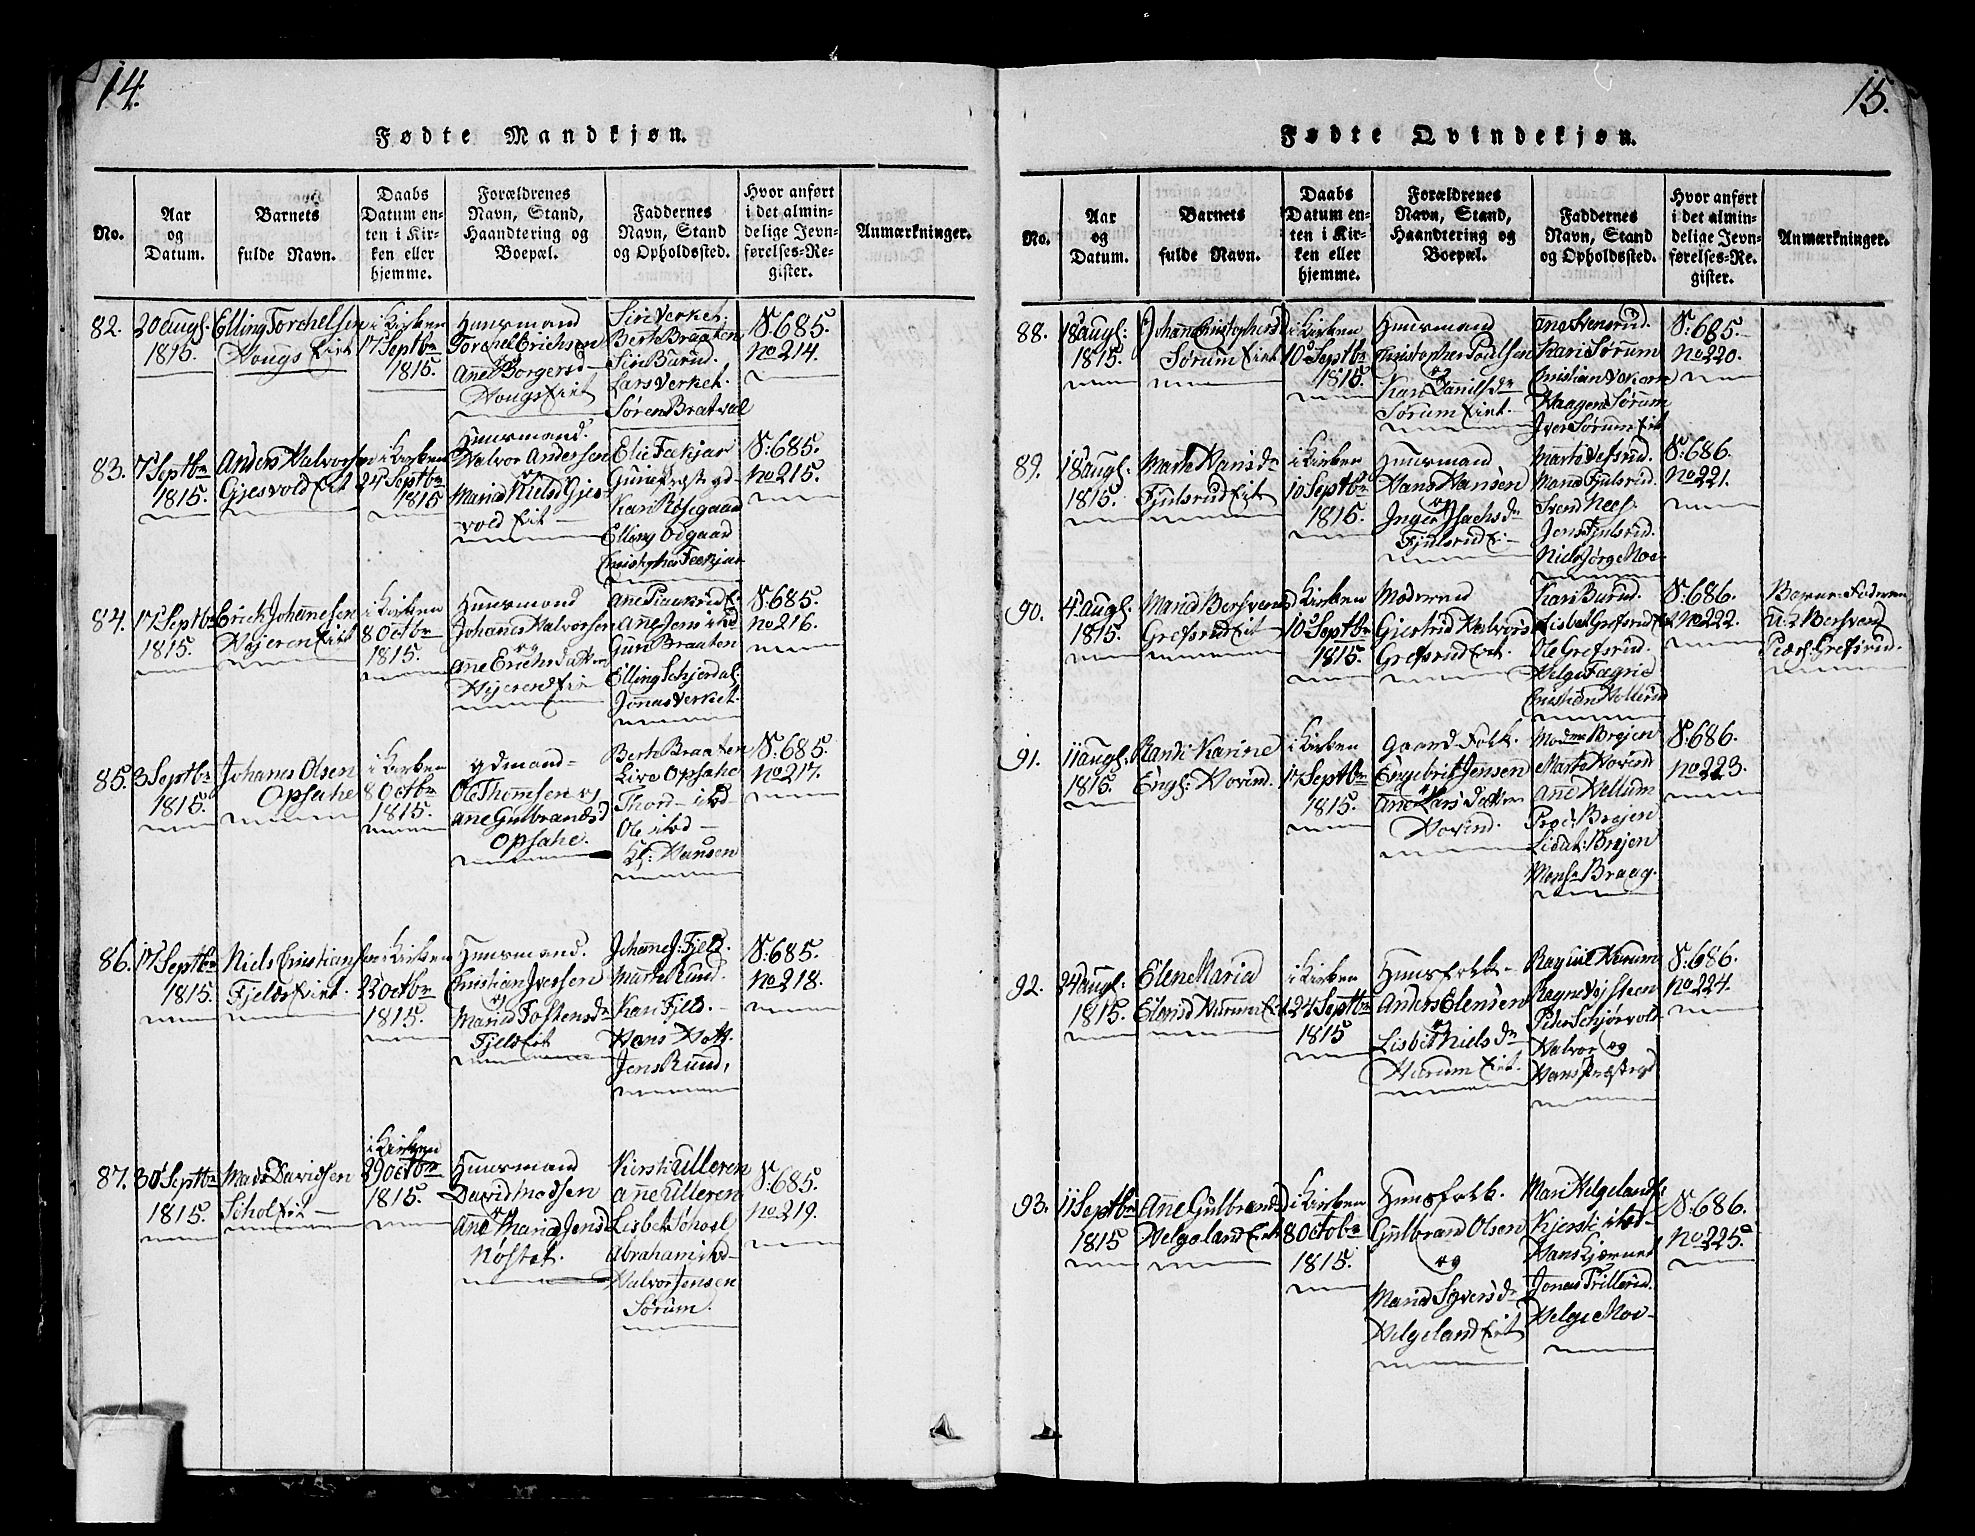 14.
Fødte Mandkjøn.
No.
Aar
og
Datum.
Barnets
fulde Navn.
Daabs
Datum en-
ten i Kir-
ken eller
hjemme.
Forældrenes
Navn, Stand,
Haandtering og
Boepæl.
Faddernes
Navn, Stand
og Opholdssted.
Hvor anført
i det almin-
delige Jevn-
førelses-Re-
gister.
Anmærkninger.
82.
20 augl.
1815.
Elling Torchelsen
Hougs Eie
i Kirken
17 Septbr
1815.
Huusmand
Torchel Erichsen
og
Ane Borgersd
Hougs Eie
Siri Verket
Berthe Braaten
Siri Burud.
Lars Verket.
Søren Bratvol
S: 685.
No 214.
83.
7 Septbr
1815.
Anders Halvorsen
Gjesvold Eie
i Kirken
24 Septbr
1815
Huusmand.
Halvor Andersen
og
Maria Nielsd Gjes-
vold Eie
Elie
Kari Røsegaard
Elling Odgaard
S: 685.
No 215.
84.
17 Septbr
1815.
Erich Johanesen
Højeren Eie
i Kirken
8 Octbr
1815.
Huusmand
Johanes Halvorsen
og
Ane Erichs Datter
Højeren Eie
Ane
Guri Braaten
Elling Schjerdal
Jonas Verket.
S: 685.
No 216.
85.
3 Septbr
1815.
Johanes Olsen
Opsahe
i Kirken
8 Octbr
1815.
Gdmand
Ole Thomsen og
Ane Gulbrandsd
Opsahe.
Berthe Braaten
Live Opsahe
Thord
Ole
Hansen
S: 685.
No 217.
86.
17 Septbr
1815.
Niels Cristiansen
Fjelds Eie.
i Kirken
22 Octbr
1815.
Huusmand.
Christian Iversen
og
Maria Tostensdr
Fjeld Eie
Johane J: Fjeld.
Marthe Ruud.
Kari Fjeld.
Hans
Jens Ruud,
S: 685.
No 218.
87.
30 Septbr
1815.
Mads Davidsen
Schol Eie
i Kirken
29 Octbr
1815.
Huusmand
David Madsen
og
Ane Maria Jensd
Nøstet.
Kirsti Ulleren
Anne Ulleren
Lisbet Schoel
Abraham
Halvor Jensen
Sørum.
S: 685.
No 219.
15.
Fødte Qvindekjøn.
No.
Aar
og
Datum.
Barnets
fulde Navn.
Daabs
Datum en-
ten i Kir-
ken eller
hjemme.
Forældrenes
Navn, Stand,
Haandtering og
Boepæl.
Faddernes
Navn, Stand
og Opholdssted.
Hvor anført
i det almin-
delige Jevn-
førelses-Re-
gister.
Anmærkninger.
88.
18 augl:
1815.
Johan Christophersd
Sørum Eie
i Kirken
10 Septbr
1815.
Huusmand
Christopher Poulsen
og
Kari Danielsdr
Sørum Eie.
Ane Svensrud.
Kari Sørum
Haagen Sørum
Iver Sørum Eie
S: 685.
No 220.
89.
18 augl:
1815.
Marte Hansdr
Fjulsrud Eie
i Kirken
10 Septbr
1815.
Huusmand
Hans Hansen
og
Inger Isachsdr
Fjulsrud Ei
Marthe
Maria Fjulsrud.
Svend
Jens Fjulsrud.
Niels Jørge Moe
S: 686.
No 221.
90.
4 augl.
1815.
Maria Bersvend
Grefsrud Eie
i Kirken
10 Septbr
1815.
Moderen
Giertrud Halvorsd
Grefsrud Eie.
Kari Burud.
Lisbet Grefsrud
Ole Grefsrud.
Helge Fagrie
Cristian Hollerud
S: 686.
No 222.
Barne-Faderen
U: Bersvend
Peders Grefsrud.
91.
11 augl.
1815.
Randi Karine
Engl: Hovind.
i Kirken
17 Septbr
1815.
Gaard Folk.
Engebrit Jensen
og
Ane Lars Datter
Hovind.
Madme Brøjen
Marte Hovind
Ane Hellum
Proc: Brøjen
Brøjen
Monsr Braag.
S: 686.
No 223.
92.
24 augl:
1815.
Elene Maria
i Kirken
24 Septbr
1815
Huusfolk
Anders Elensen
og
Lisbet Nielsdr
Hurum Eie.
Ragnil Hurum
Ragne Vejsteen
Peder Schjørvold
Halvor og
Hans
S: 686.
No 224.
93.
11 Septbr
1815
Anne Gulbrandsd
Helgeland Eie
i Kirken
8 Octobr
1815.
Huusfolk.
Gulbrand Olsen
og
Maria Syversdr
Helgeland Eie
Mari Helgeland
Kjersti
Hans
Jonas Trillerud.
Helge Moe
S: 686.
No 225.